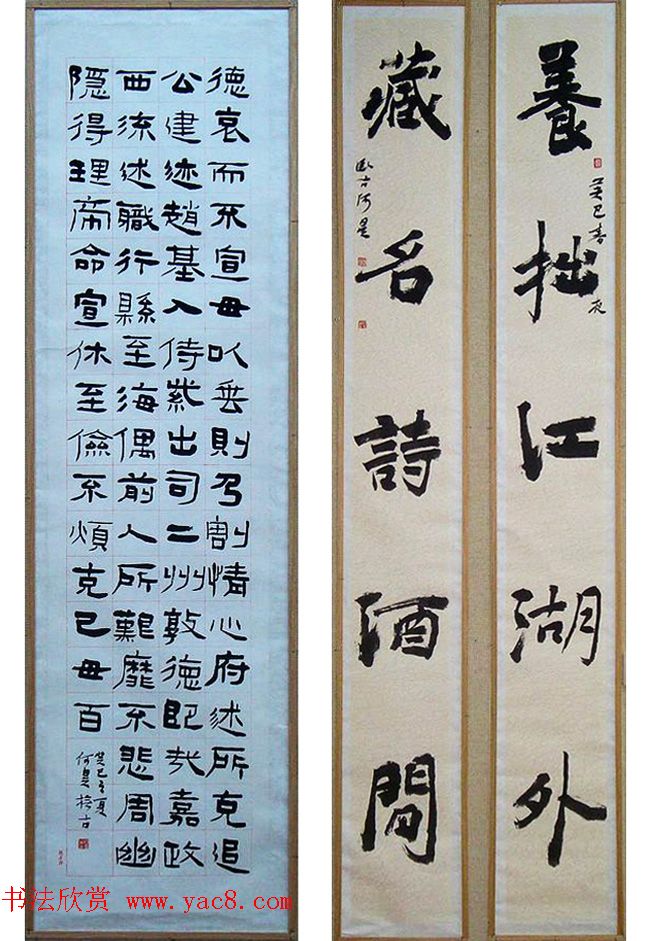 養拙江湖外
癸巳春夜
藏名詩酒間
德哀而不宣毋以垂則乃割情心府述所克追
公建迹趙基入侍紫出司二州敦德哉嘉政
西流述職行縣至海偶前人所艱靡不悲周幽
隱得理帝命宣休至儉不煩克己毋百
癸巳之夏
书法欣赏 www.yac8.com